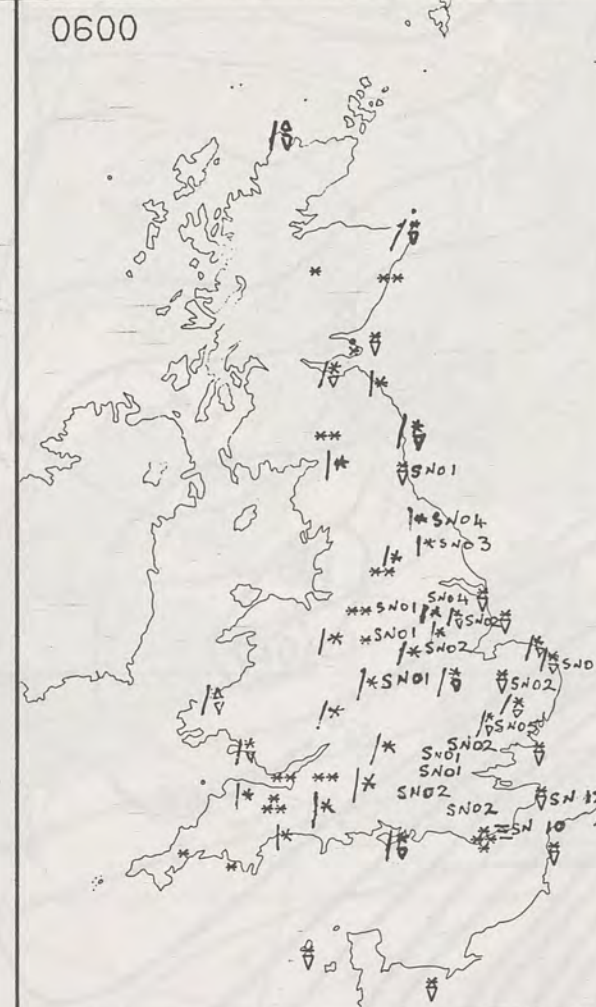 0600
SN01
SN04
SN03
SN04
SN01
SN02
SN01
SN02
SN01
SN02
SN05
SN02
SN01
SN01
SN02
SN 12
SN02
SN 10